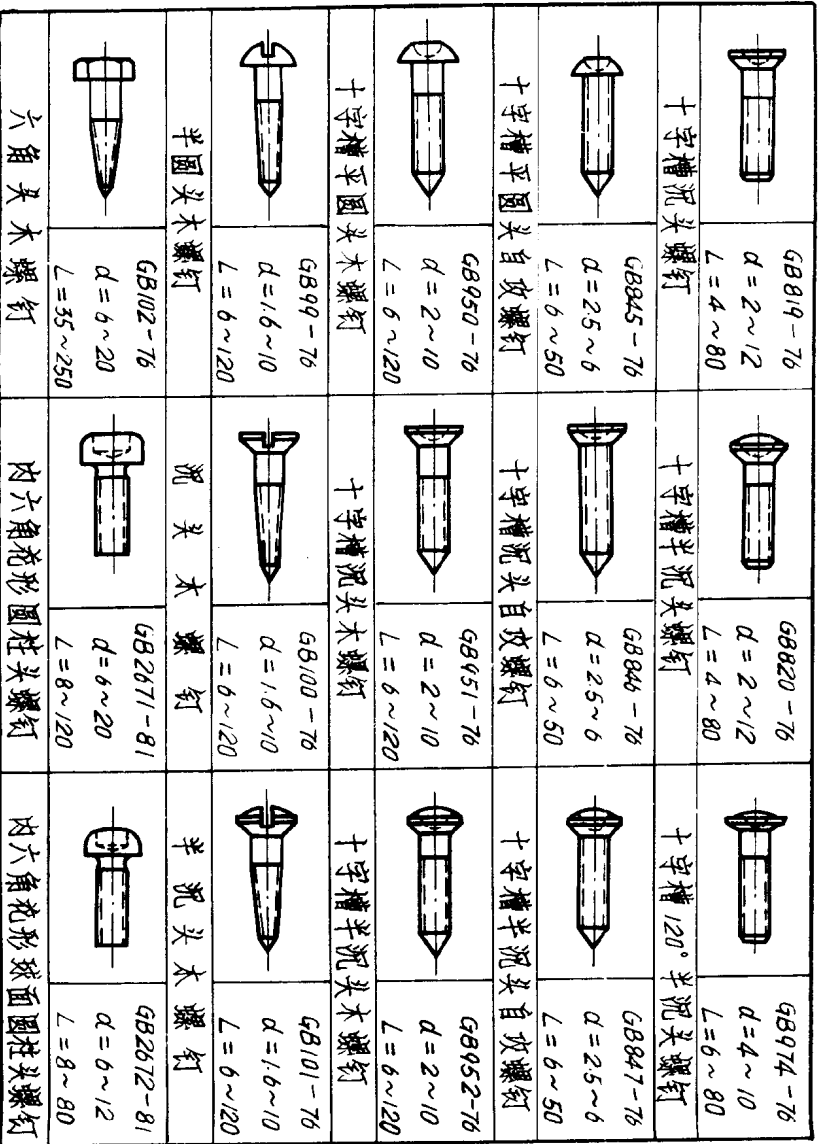 GB819-76
d=2~12
L=4~80
十字槽沉头螺钉
GB820-76
d=2~12
L=4~80
十字槽半沉头螺钉
GB974-76
d=4~10
L=6~80
十字槽120°半沉头螺钉
GB845-76
d=2.5~6
L=6~50
十字槽平圆头自攻螺钉
GB846-76
d=2.5~6
L=6~50
十字槽沉头自攻螺钉
GB847-76
d=2.5~6
L=6~50
十字槽半沉头自攻螺钉
GB950-76
d=2~10
L=6~120
十字槽平圆头木螺钉
GB951-76
d=2~10
L=6~120
十字槽沉头木螺钉
GB952-76
d=2~10
L=6~120
十字槽半沉头木螺钉
GB99-76
d=1.6~10
L=6~120
半圆头木螺钉
GB100-76
d=1.6~10
L=6~120
沉头木螺钉
GB101-76
d=1.6~10
L=6~120
半沉头木螺钉
GB102-76
d=6~20
L=35~250
六角头木螺钉
GB2671-81
d=6~20
L=8~120
内六角花形圆柱头螺钉
GB2672-81
d=6~12
L=8~80
内六角花形球面圆柱头螺钉